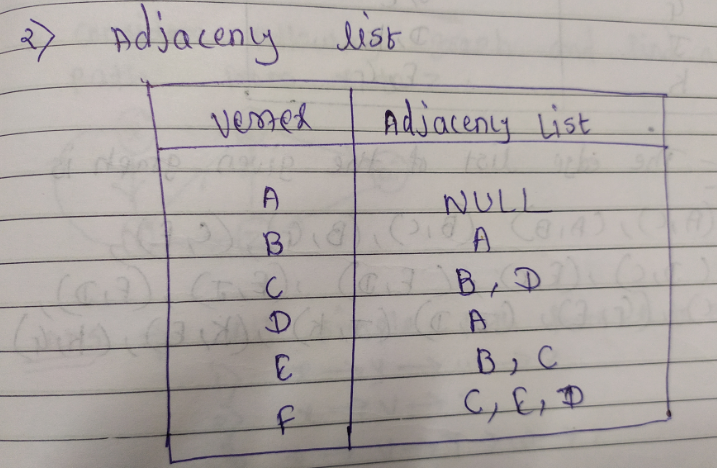 2) Adjaceny list
Vertex Adjacency List
A NULL
B A
C B, D
D A
E B, C
F C, E, D